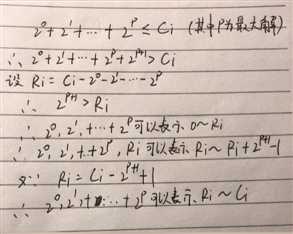 2⁰+2¹+⋯+2ᴾ ≤ Ci (其中P为最大解)
∴ 2⁰+2¹+⋯+2ᴾ+2ᴾ⁺¹ > Ci
设 Ri = Ci-2⁰-2¹-⋯-2ᴾ
∴ 2ᴾ⁺¹ > Ri
∴ 2⁰, 2¹, +⋯+2ᴾ 可以表示 0~Ri
∴ 2⁰, 2¹, +⋯+2ᴾ, Ri 可以表示 Ri ~ Ri+2ᴾ⁺¹-1
又∵ Ri = Ci-2ᴾ⁺¹+1
∴ 2⁰, 2¹, +⋯+2ᴾ 可以表示 Ri ~ Ci